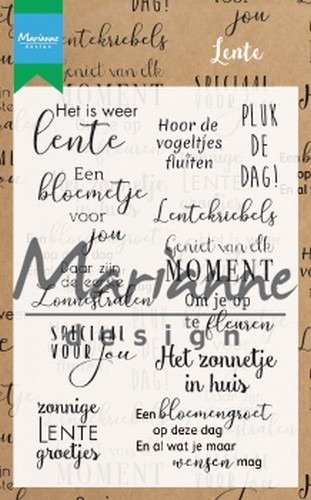 Marianne
design
Lente
Het is weer
lente
Een
bloemetje
voor
jou
Daar zijn
de eerste
Zonnestralen
SPECIAAL
VOOR jou
zonnige
LENTE
groetjes
Hoor de
vogeltjes
fluiten
PLUK
DE
DAG!
Lentekriebels
Geniet van elk
MOMENT
Om je op
te fleuren
Het zonnetje
in huis
Een bloemengroet
op deze dag
En al wat je maar
wensen mag
Marianne
design